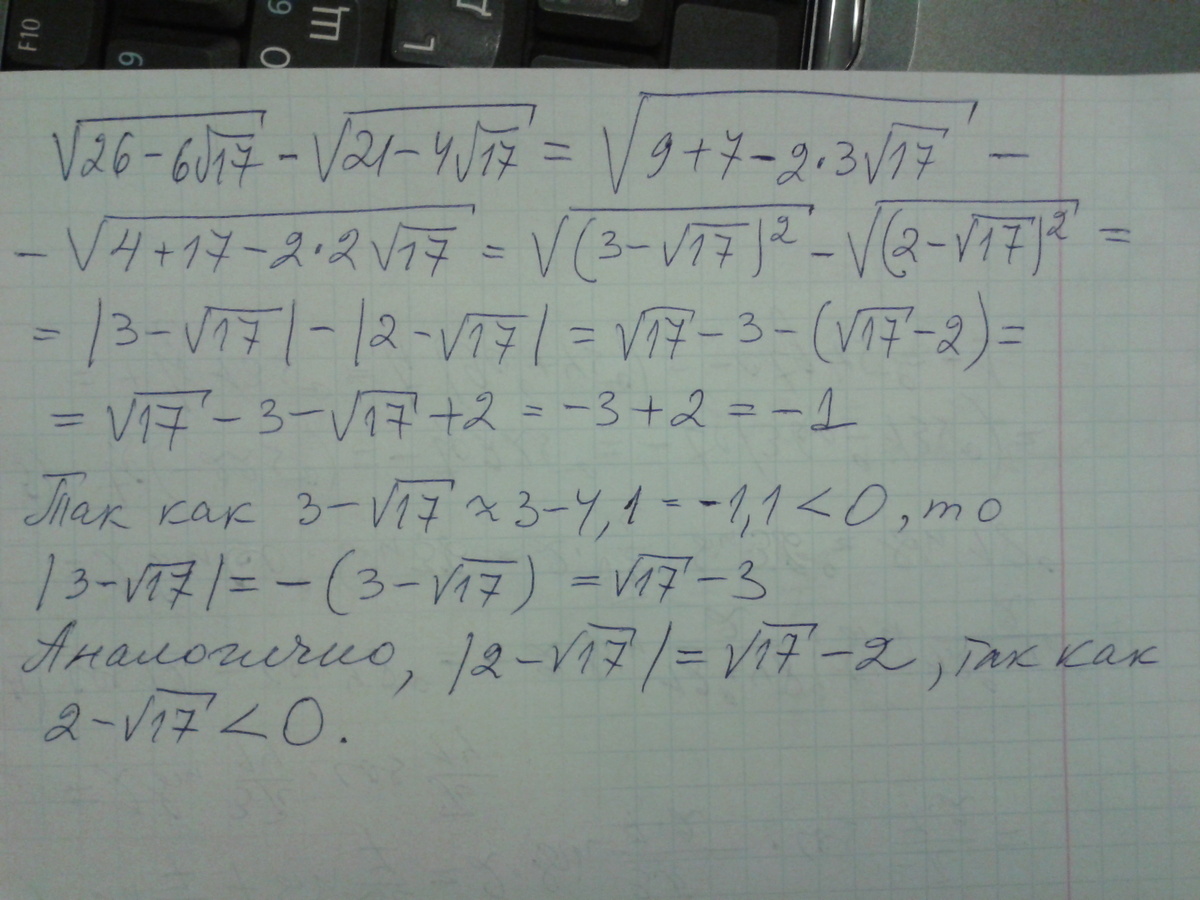 F10
9
O
6
Щ
L
Д
√26-6√17 - √21-4√17 = √9+7-2·3√17 -
- √4+17-2·2√17 = √(3-√17)² - √(2-√17)² =
= |3-√17| - |2-√17| = √17-3-(√17-2)=
= √17-3-√17+2 = -3+2 = -1
Так как 3-√17 ≈ 3-4,1 = -1,1 < 0, то
|3-√17| = -(3-√17) = √17-3
Аналогично, |2-√17| = √17-2, так как
2-√17 < 0.